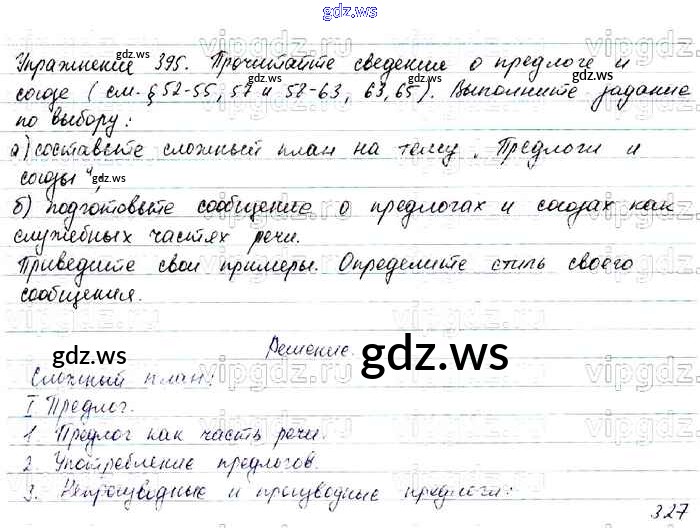 gdz.ws
Упражнение 395. Прочитайте сведения о предлоге и
союзе (см. § 52-55, 57 и 58-63, 63,65). Выполните задание
по выбору:
а) составьте сложный план на тему „Предлоги и
союзы“;
б) подготовьте сообщение о предлогах и союзах как
служебных частях речи.
Приведите свои примеры. Определите стиль своего
сообщения.
Решение.
Сложный план:
I Предлог.
1. Предлог как часть речи.
2. Употребление предлогов.
3. Непроизводные и производные предлоги:
327
gdz.ws
gdz.ws
gdz.ws
gdz.ws
gdz.ws
gdz.ws
vipgdz.ru